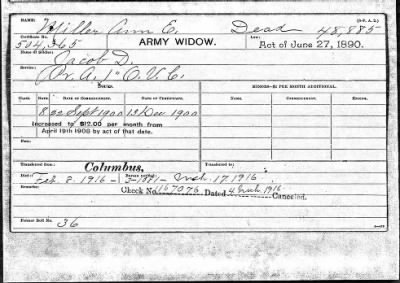 (3-7. A. D.)
NAME:
Miller Ann E. Dead 48,885
Certificate No.
504,365 ARMY WIDOW. Act of June 27, 1890.
Name of Soldier:
Jacob D.
Service:
Pr. A, 1" O.V.C.
MINORS—$2 PER MONTH ADDITIONAL.
CLASS. RATE. DATE OF COMMENCEMENT. DATE OF CERTIFICATE. NAME. COMMENCEMENT. ENDING.
8 22 Sept 1900 13 Dec 1900
Increased to $12.00 per month from
April 19th 1908 by act of that date.
Transferred from: Columbus, Transferred to:
Died Feb. 8. 1916 - Mch. 17, 1916
Remarks: Check No. 1167076 Dated 4 Mch. 1916
Canceled.
Former Roll No.
36